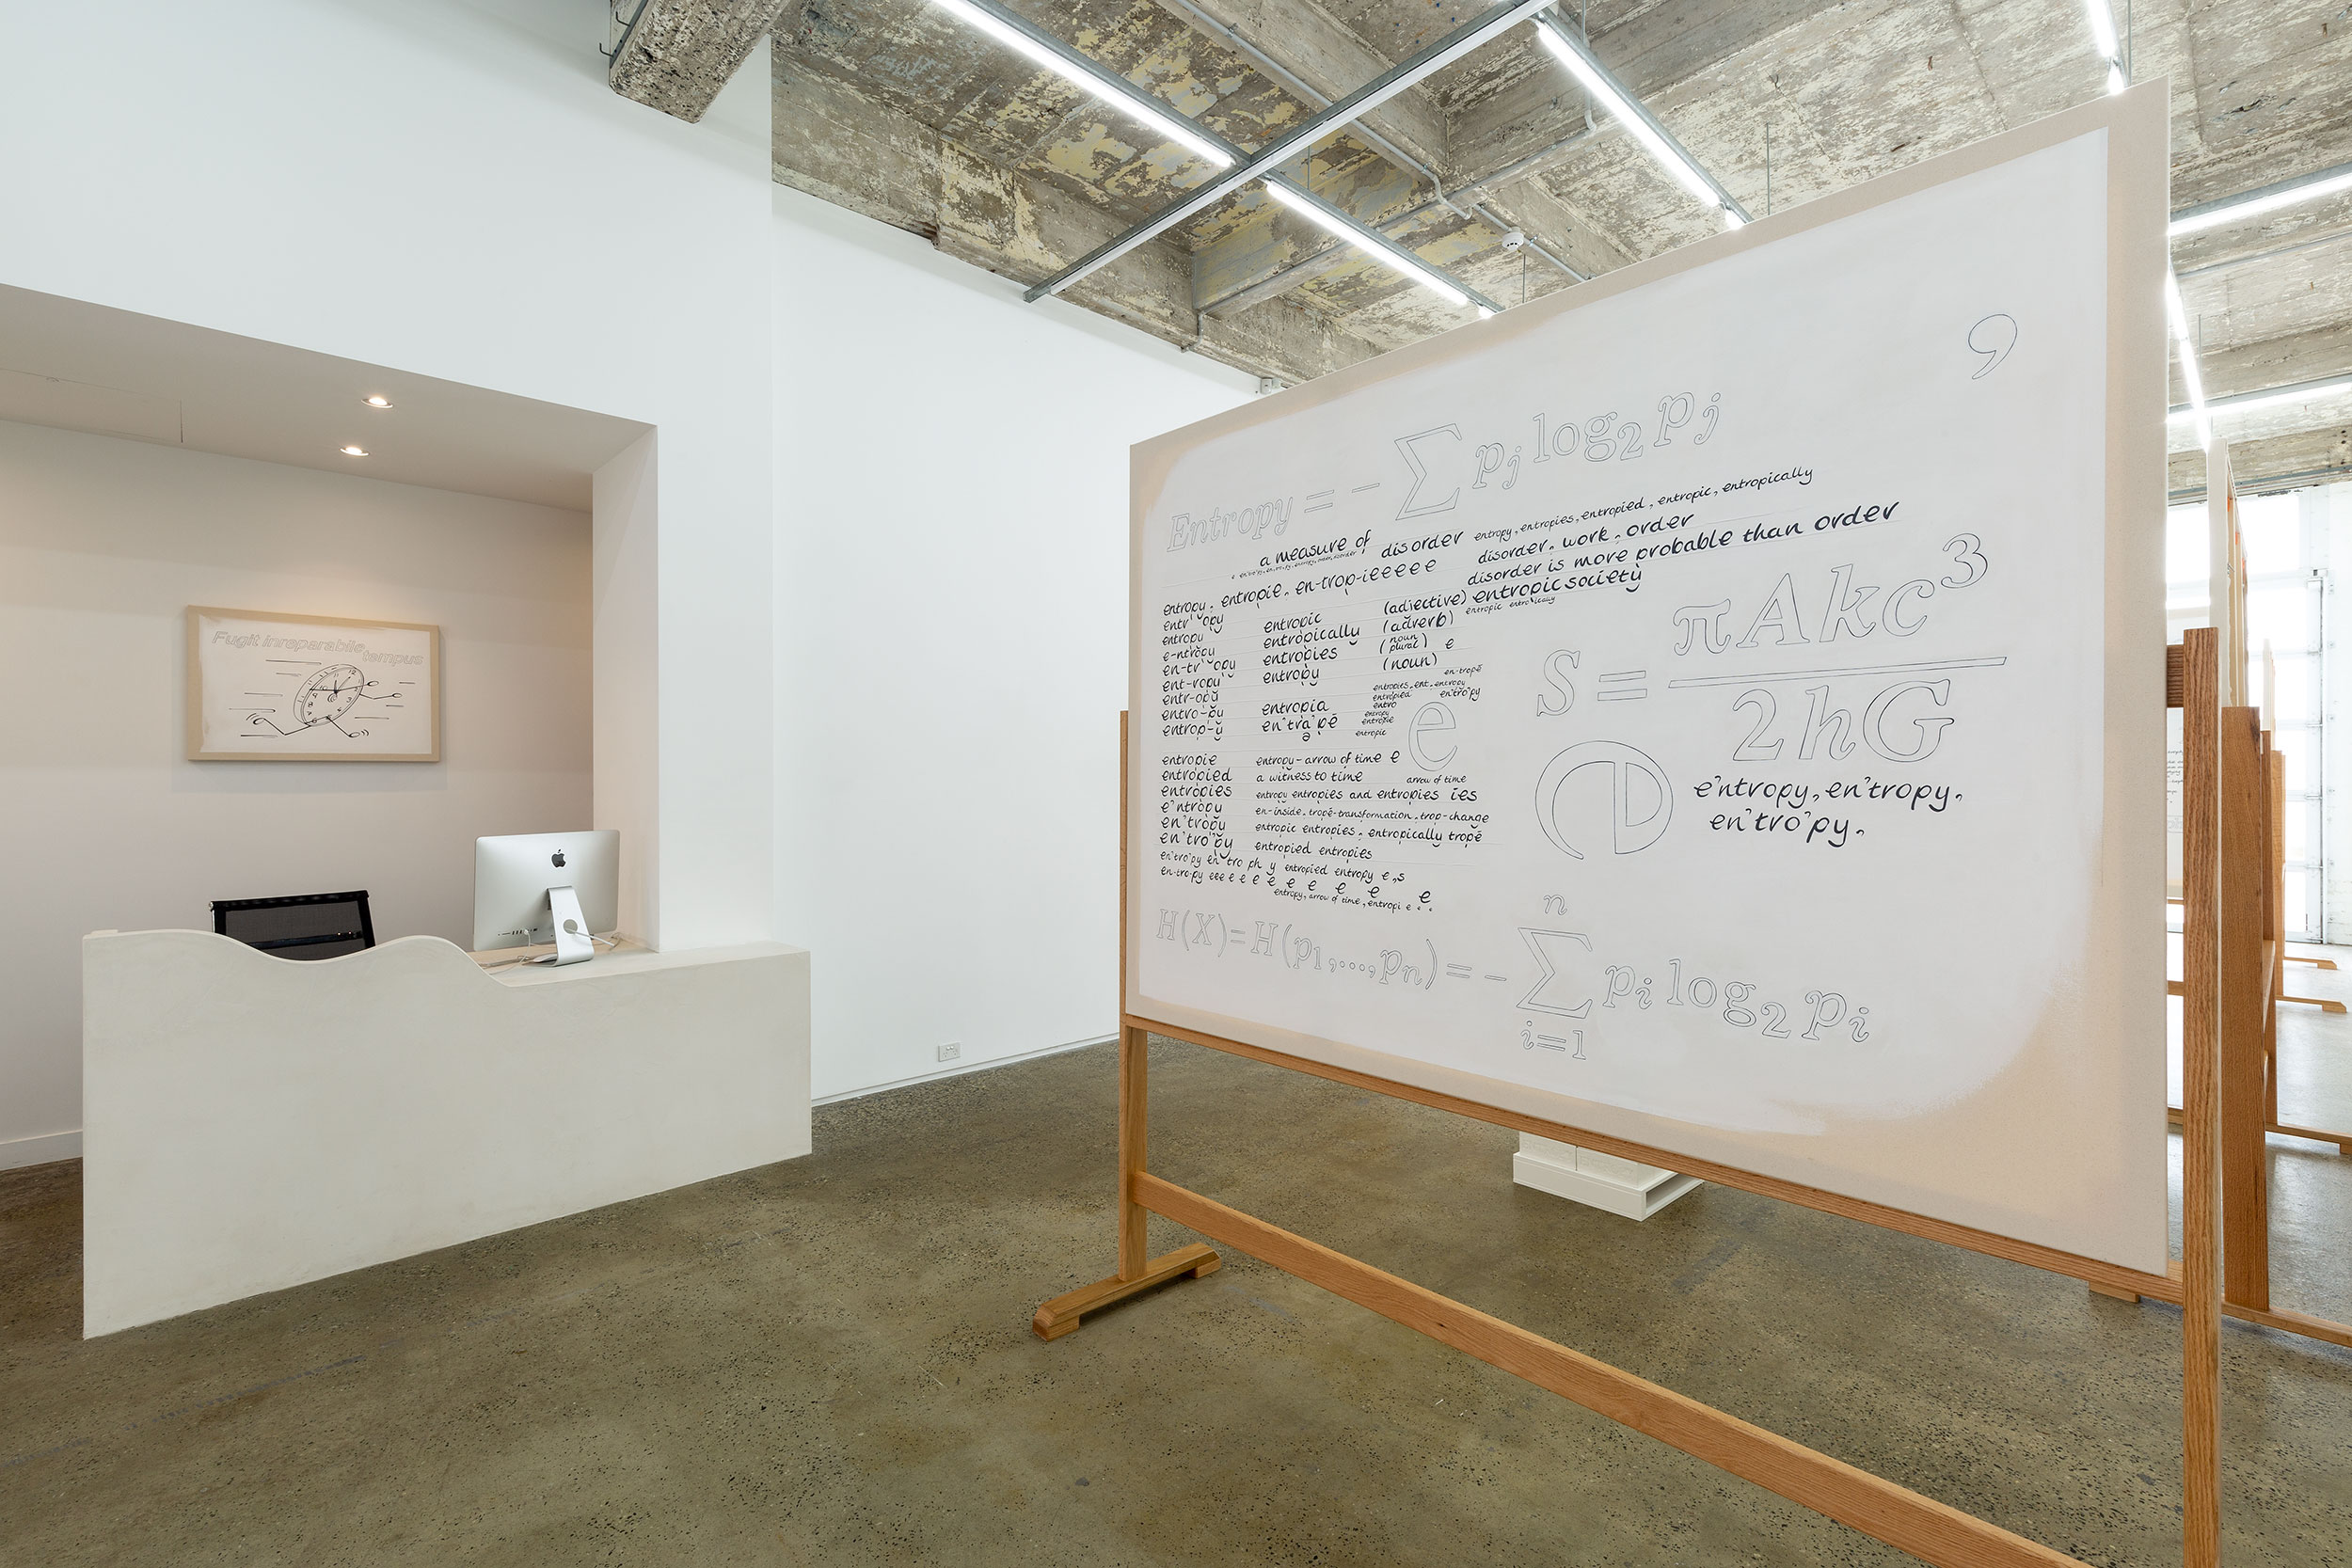 Fugit inreparabile
tempus
,
Entropy = − Σ pj log2 pj
a measure of disorder
entropy, entropies, entropied, entropic, entropically
disorder, work, order
disorder is more probable than order
entropy, entropie, en-trop-ieeeee
(adjective) entropic society
entropic entropically
entropic
entropically (adverb)
entropies (noun plural) e
entropy (noun)
entropy
e-ntropy
en-tr opy
ent-ropy
entr-opy
entro-py
entrop-y
entropia
en-tropē
entropies, ent, entropy
entropied
entro
entropy
entropie
entropic
e
entropie
entropied
entropies
e'ntropy
en'tropy
en'tro'py
entropy - arrow of time e
a witness to time
arrow of time
entropy entropies and entropies ies
en-inside, tropē-transformation, trop-change
entropic entropies, entropically tropē
entropied entropies
en'tro'py en tro ph y entropied entropy e,s
en-tro-py eee e e e e e e e
entropy, arrow of time, entropi e
S = πAkc³ / 2hG
e'ntropy, en'tropy,
en'tro'py,
H(X)=H(p1,...,pn)=− Σ pi log2 pi
n
i=1